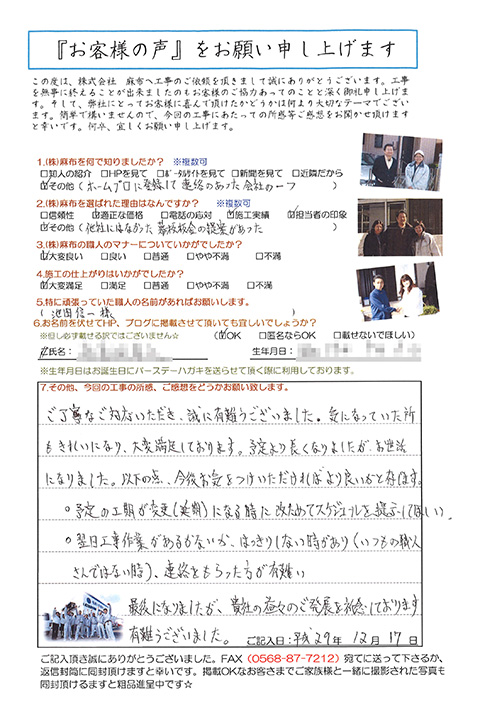 『お客様の声』をお願い申し上げます
この度は、株式会社 麻布へ工事のご依頼を頂きまして誠にありがとうございます。工事
を無事に終えることが出来ましたのもお客様のご協力あってのことと深く御礼申し上げ
ます。そして、弊社にとってお客様に喜んで頂けたかどうかは何より大切なテーマでござい
ます。簡単で構いませんので、今回の工事にあたっての所感等ご感想をお聞かせ頂けます
と幸いです。何卒、宜しくお願い申し上げます。
1.(株)麻布を何で知りましたか? ※複数可
□知人の紹介 □HPを見て □ポータルサイトを見て □新聞を見て □近隣だから
☑その他(ホームプロに登録して連絡のあった会社の一つ)
2.(株)麻布を選ばれた理由はなんですか? ※複数可
□信頼性 ☑適正な価格 □電話の応対 ☑施工実績 ☑担当者の印象
☑その他(他社にはなかった 板金の提案があった)
3.(株)麻布の職人のマナーについていかがでしたか?
☑大変良い □良い □普通 □やや不満 □不満
4.施工の仕上がりはいかがでしたか?
☑大変満足 □満足 □普通 □やや不満 □不満
5.特に頑張っていた職人の名前があればお願いします。
(池田信一様)
6.お名前を伏せてHP、ブログに掲載させて頂いても宜しいでしょうか?
※但し必ず載せる訳ではございません☆ (☑OK □匿名ならOK □載せないでほしい)
氏名: 生年月日:
※生年月日はお誕生日にバースデーハガキを送らせて頂く際に利用しております。
7.その他、今回の工事の所感、ご感想をどうかお願い致します。
ご丁寧なご対応いただき、誠に有難うございました。気になっていた所
もきれいになり、大変満足しております。予定より長くなりましたが、お世話
になりました。以下の点、今後お気をつけいただければより良いかと存じます。
○予定の工期が変更(延期)になる時に改ためてスケジュールを提示してほしい。
○翌日工事作業があるかないか、はっきりしない時があり(いつもの職人
さんではない時)、連絡をもらった方が有難い
最後になりましたが、貴社の益々のご発展を祈念しております
有難うございました。 ご記入日:平成29年 12月 17日
ご記入頂き誠にありがとうございました。FAX(0568-87-7212)宛てに送って下さるか、
返信封筒に同封頂けますと幸いです。掲載OKなお客さまでご家族様と一緒に撮影された写真も
同封頂けるますと粗品進呈中です☆